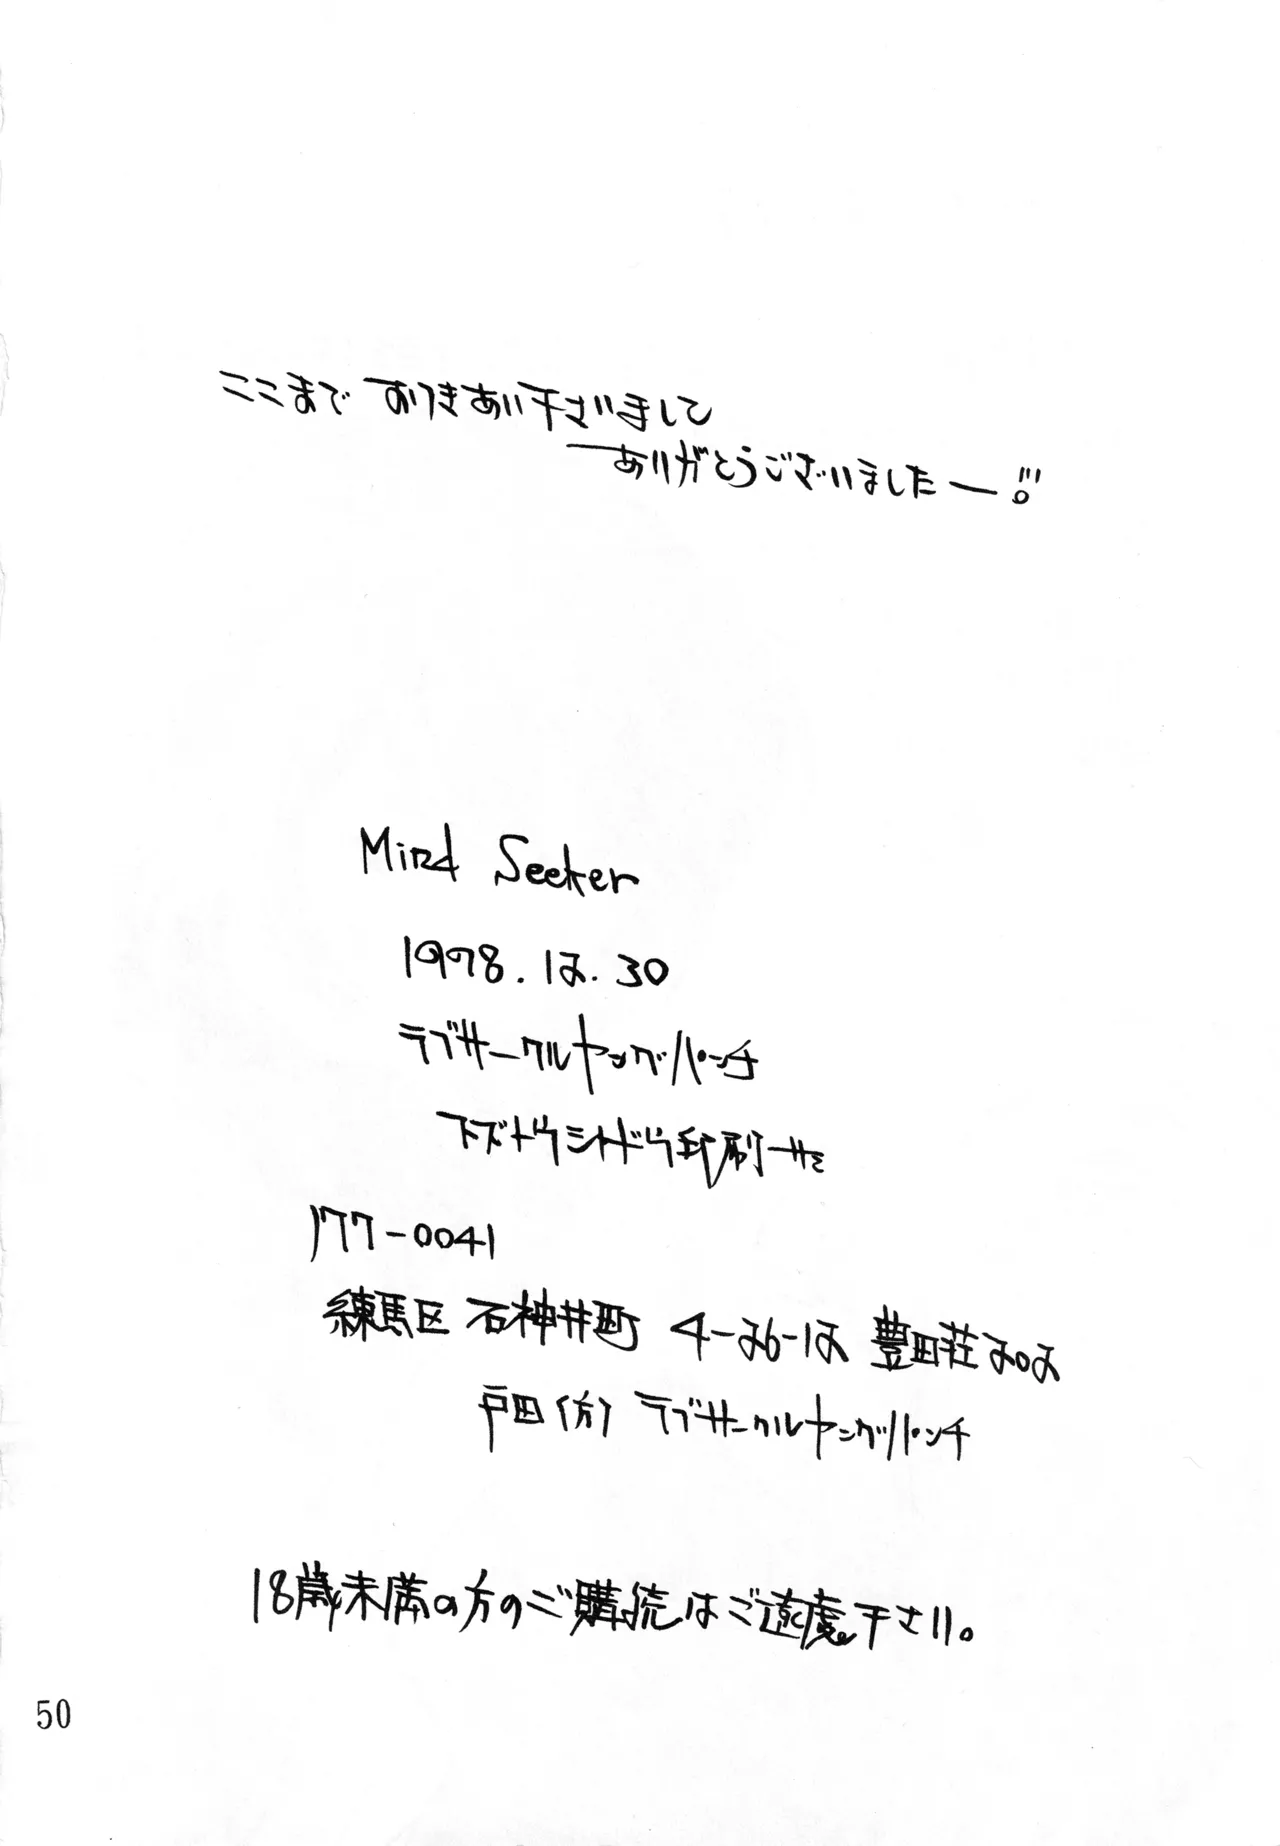 ここまで おつきあい下さいまして
ありがとうございましたー!!!
Mind Seeker
1998.12.30
ラブサークルヤングパンチ
印刷サミ
177-0041
練馬区 石神井町 4-26-12 豊田荘202
戸田(方) ラブサークルヤングパンチ
18歳未満の方のご購読はご遠慮下さい。
50